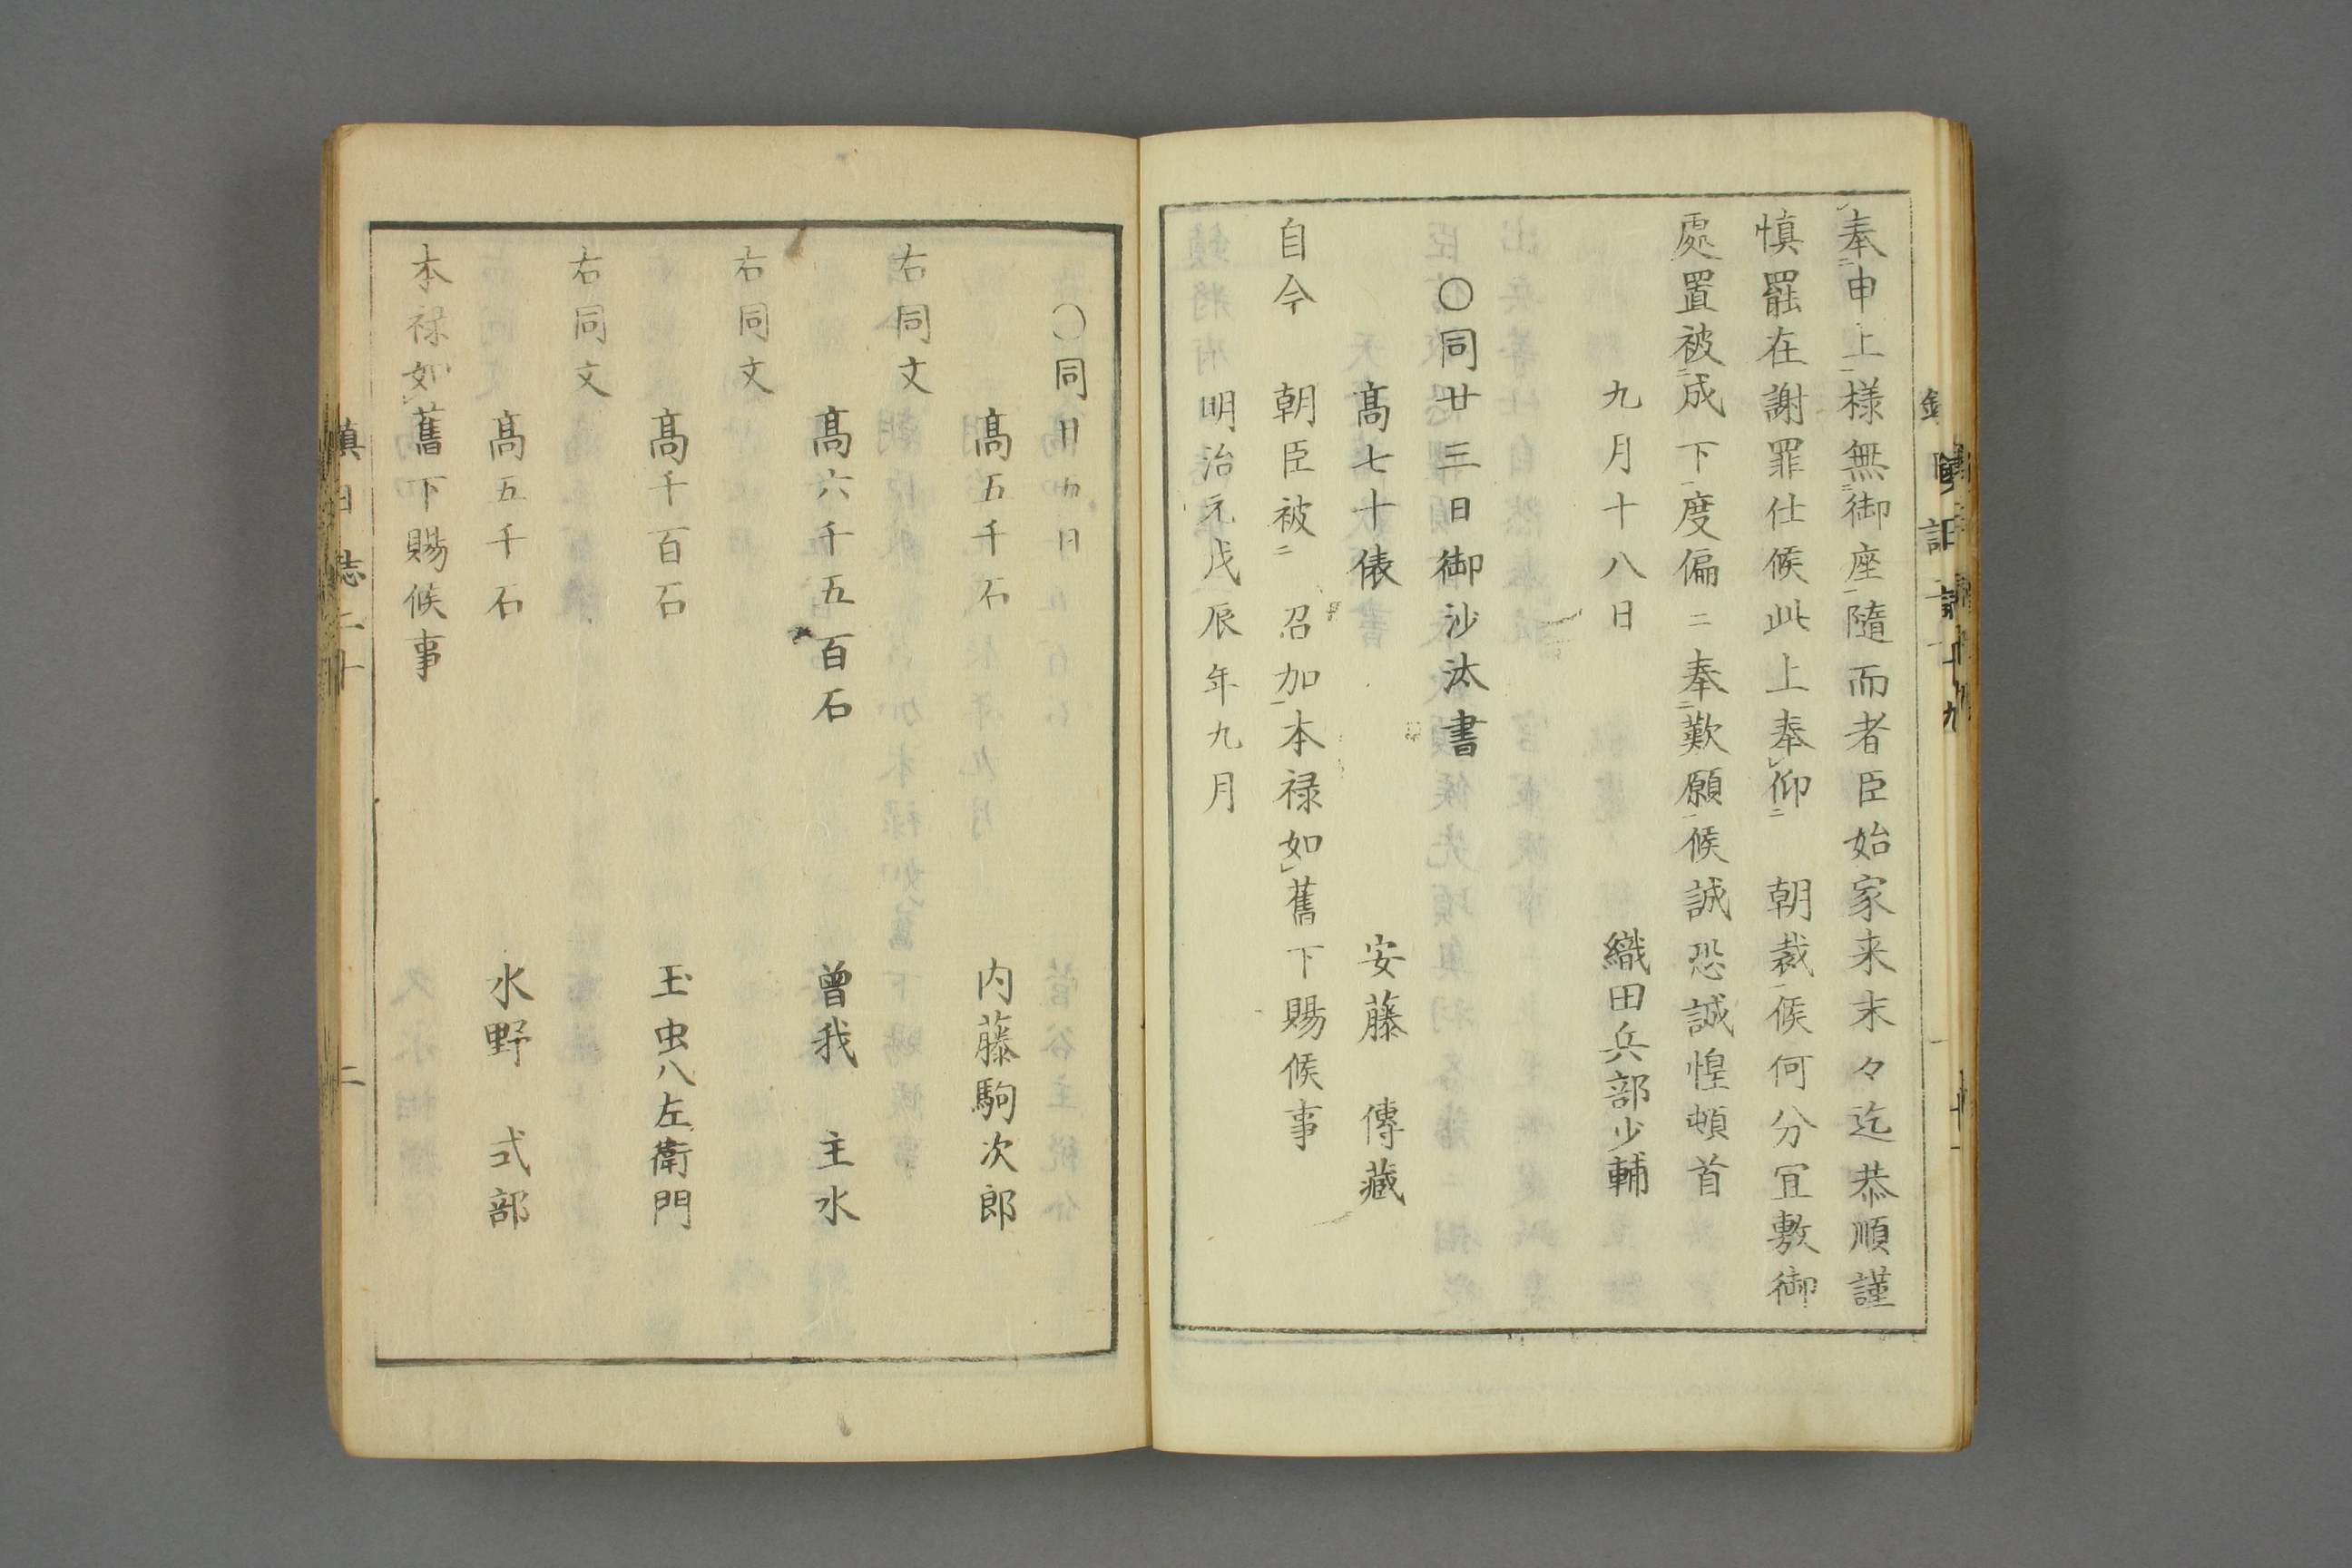 奉㆓申上㆒様無㆓御座㆒隨而者臣始家来末々迄恭順謹
慎罷在謝罪仕候此上奉㆑仰㆓　朝裁㆒候何分冝敷御
處置被㆓成下㆒度偏ニ奉㆓歎願㆒候誠恐誠惶頓首
九月十八日　織田兵部少輔
〇同廿三日御沙汰書
髙七十俵　安藤　傳藏
自今　朝臣被㆓　召加㆒本禄如㆑舊下賜候事
明治元戊辰年九月
〇同廿五日
髙五千石　内藤駒次郎
右同文
髙六千五百石　曾我　主水
右同文
髙千百石　玉虫八左衛門
右同文
髙五千石　水野　式部
本禄如㆑舊下賜候事
鎮日誌二十　二